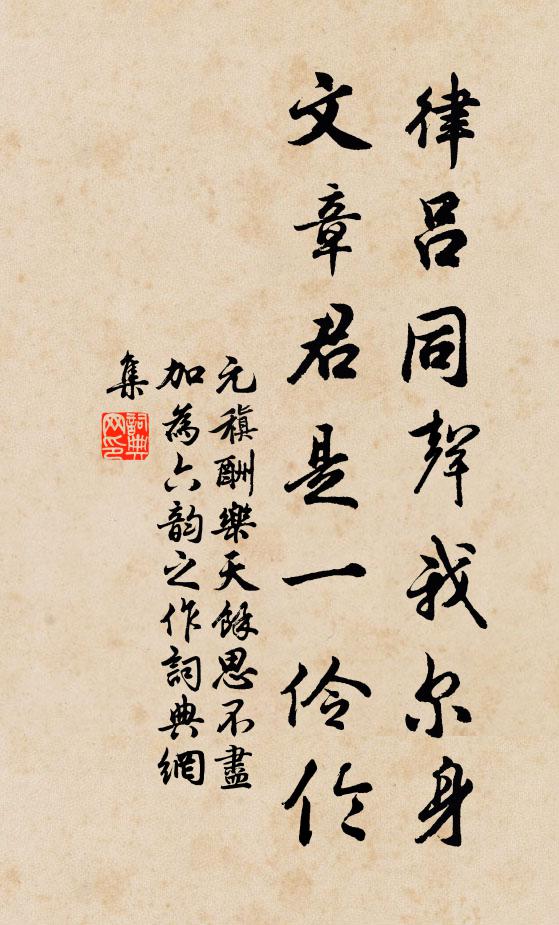 律呂同聲我尔身
文章君是一伶伦
元稹酬樂天餘思不盡
加為六韵之作詞典網
集
詞典
网印